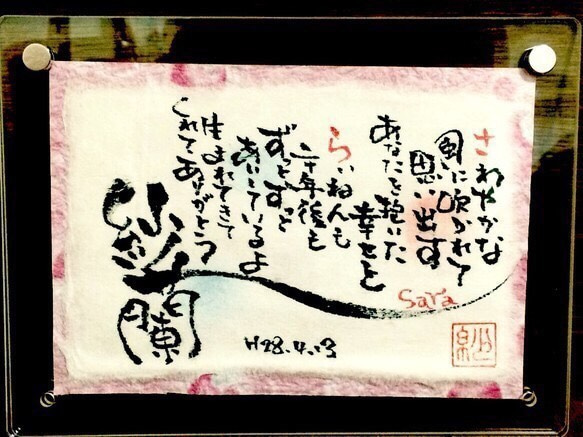 さわやかな
風に吹かれて
思い出す
あなたを抱いた
幸せを
らいねんも
二十年後も
ずっとずっと
あいしているよ
生まれてきて
くれてありがとう
紗蘭
Sara
H28.4.13
紗